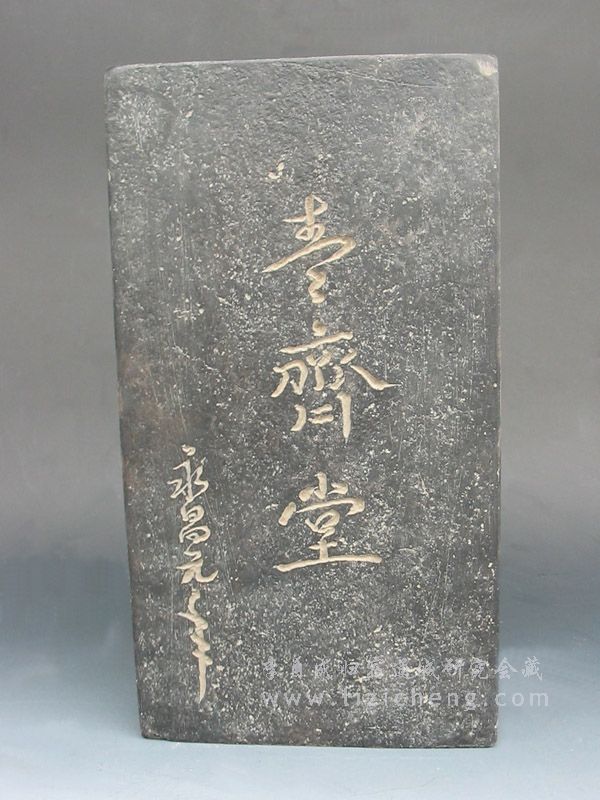 齋堂
永昌元之年
李自成归宿遗址研究会藏
www.lizicheng.com